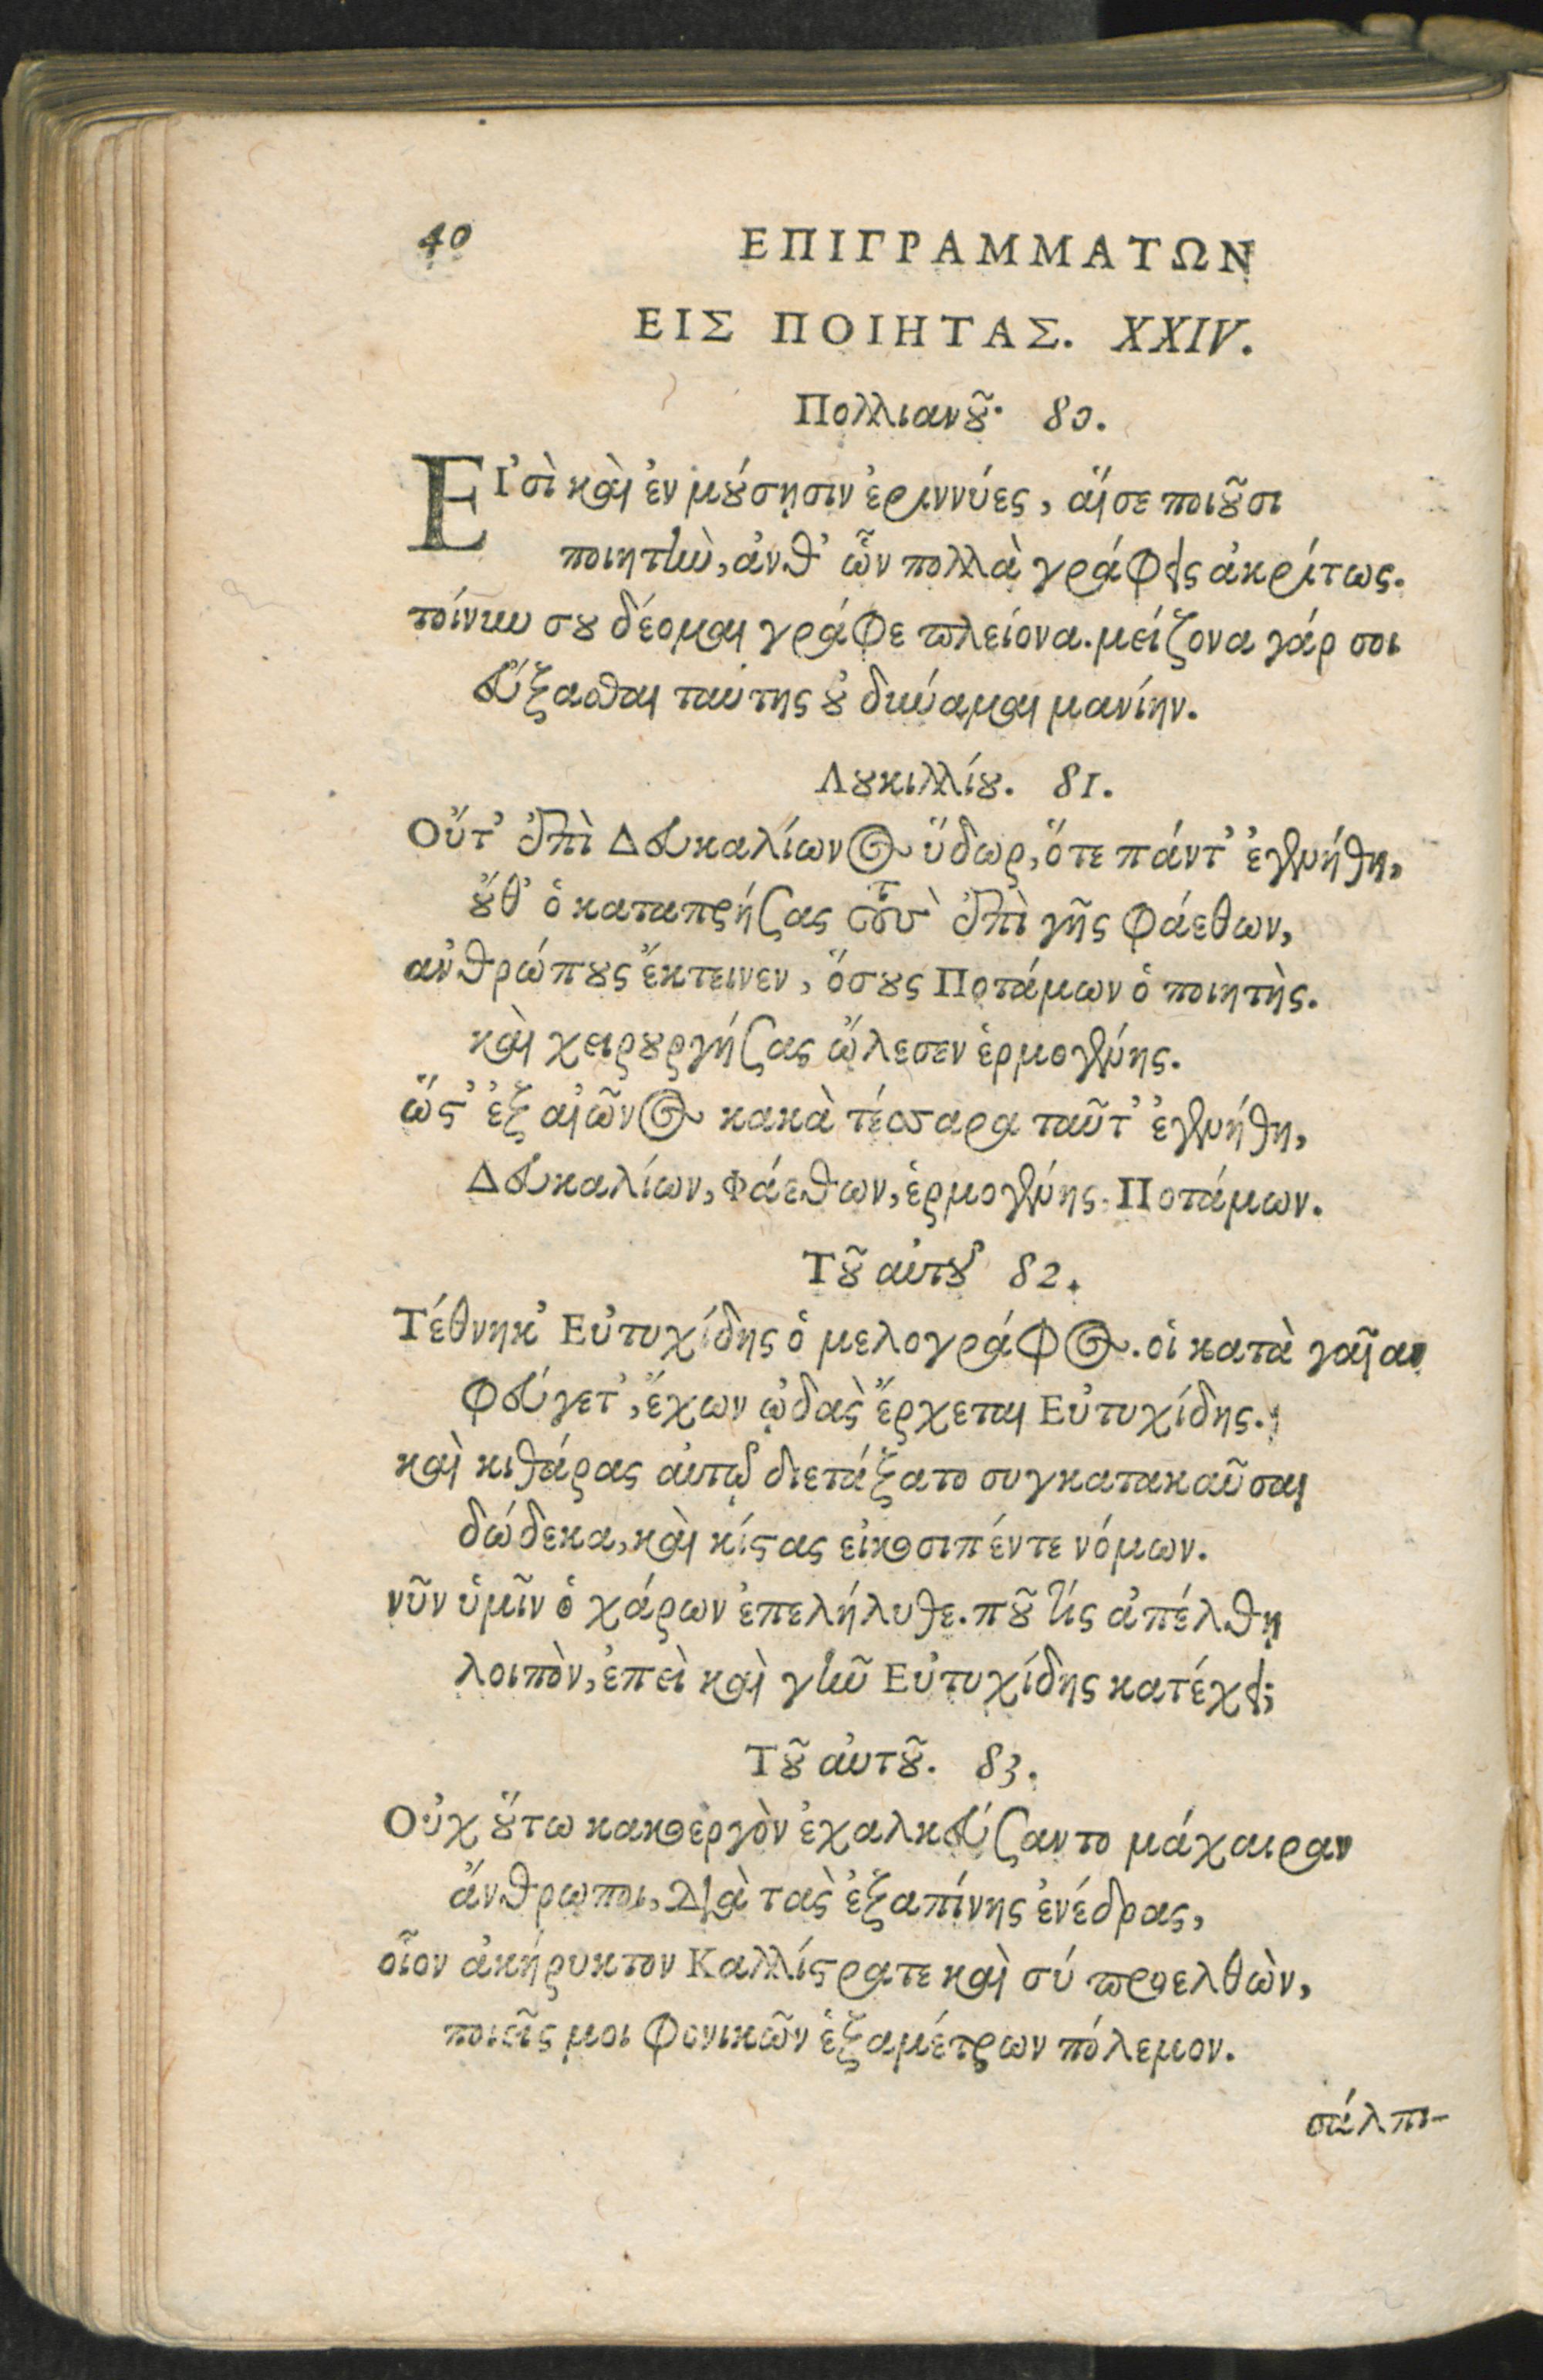 40 ΕΠΙΓΡΑΜΜΑΤΩΝ
ΕΙΣ ΠΟΙΗΤΑΣ. XXIV.
Πολλιανοῦ. 80.
Εἰσὶ καὶ ἐν μούσησιν ἐριννύες, αἵ σε ποιοῦσι
ποιητὴν, ἀνθ᾽ ὧν πολλὰ γράφεις ἀκρίτως.
τοίνυν σου δέομαι γράφε πλείονα. μείζονα γάρ σοι
εὔξασθαι ταύτης οὐ δύναμαι μανίην.
Λουκιλλίου. 81.
Οὔτ᾽ ἐπὶ Δευκαλίωνος ὕδωρ, ὅτε πάντ᾽ ἐγενήθη,
οὔθ᾽ ὁ καταπρήσας τοὺς ἐπὶ γῆς Φάεθων,
ἀνθρώπους ἔκτεινεν, ὅσους Ποτάμων ὁ ποιητὴς.
καὶ χειρουργήσας ὤλεσεν ἑρμογένης.
ὥστ᾽ ἐξ αἰῶνος κακὰ τέσσαρα ταῦτ᾽ ἐγενήθη,
Δευκαλίων, Φάεθων, ἑρμογένης. Ποτάμων.
Τοῦ αὐτοῦ 82.
Τέθνηκ᾽ Εὐτυχίδης ὁ μελογράφος. οἱ κατὰ γαῖαν
φεύγετ᾽, ἔχων ᾠδὰς ἔρχεται Εὐτυχίδης.
καὶ κιθάρας αὑτῷ διετάξατο συγκατακαῦσαι
δώδεκα, καὶ κίστας εἰκοσιπέντε νόμων.
νῦν ὑμῖν ὁ χάρων ἐπελήλυθε. ποῦ τίς ἀπέλθῃ
λοιπὸν, ἐπεὶ καὶ γῆν Εὐτυχίδης κατέχει;
Τοῦ αὐτοῦ. 83.
Οὐχ οὕτω κακοεργὸν ἐχαλκεύσαντο μάχαιραν
ἄνθρωποι, διὰ τὰς ἐξαπίνης ἐνέδρας,
οἷον ἀκήρυκτον Καλλίστρατε καὶ σύ προελθὼν,
ποιεῖς μοι φονικῶν ἑξαμέτρων πόλεμον.
σάλπι-